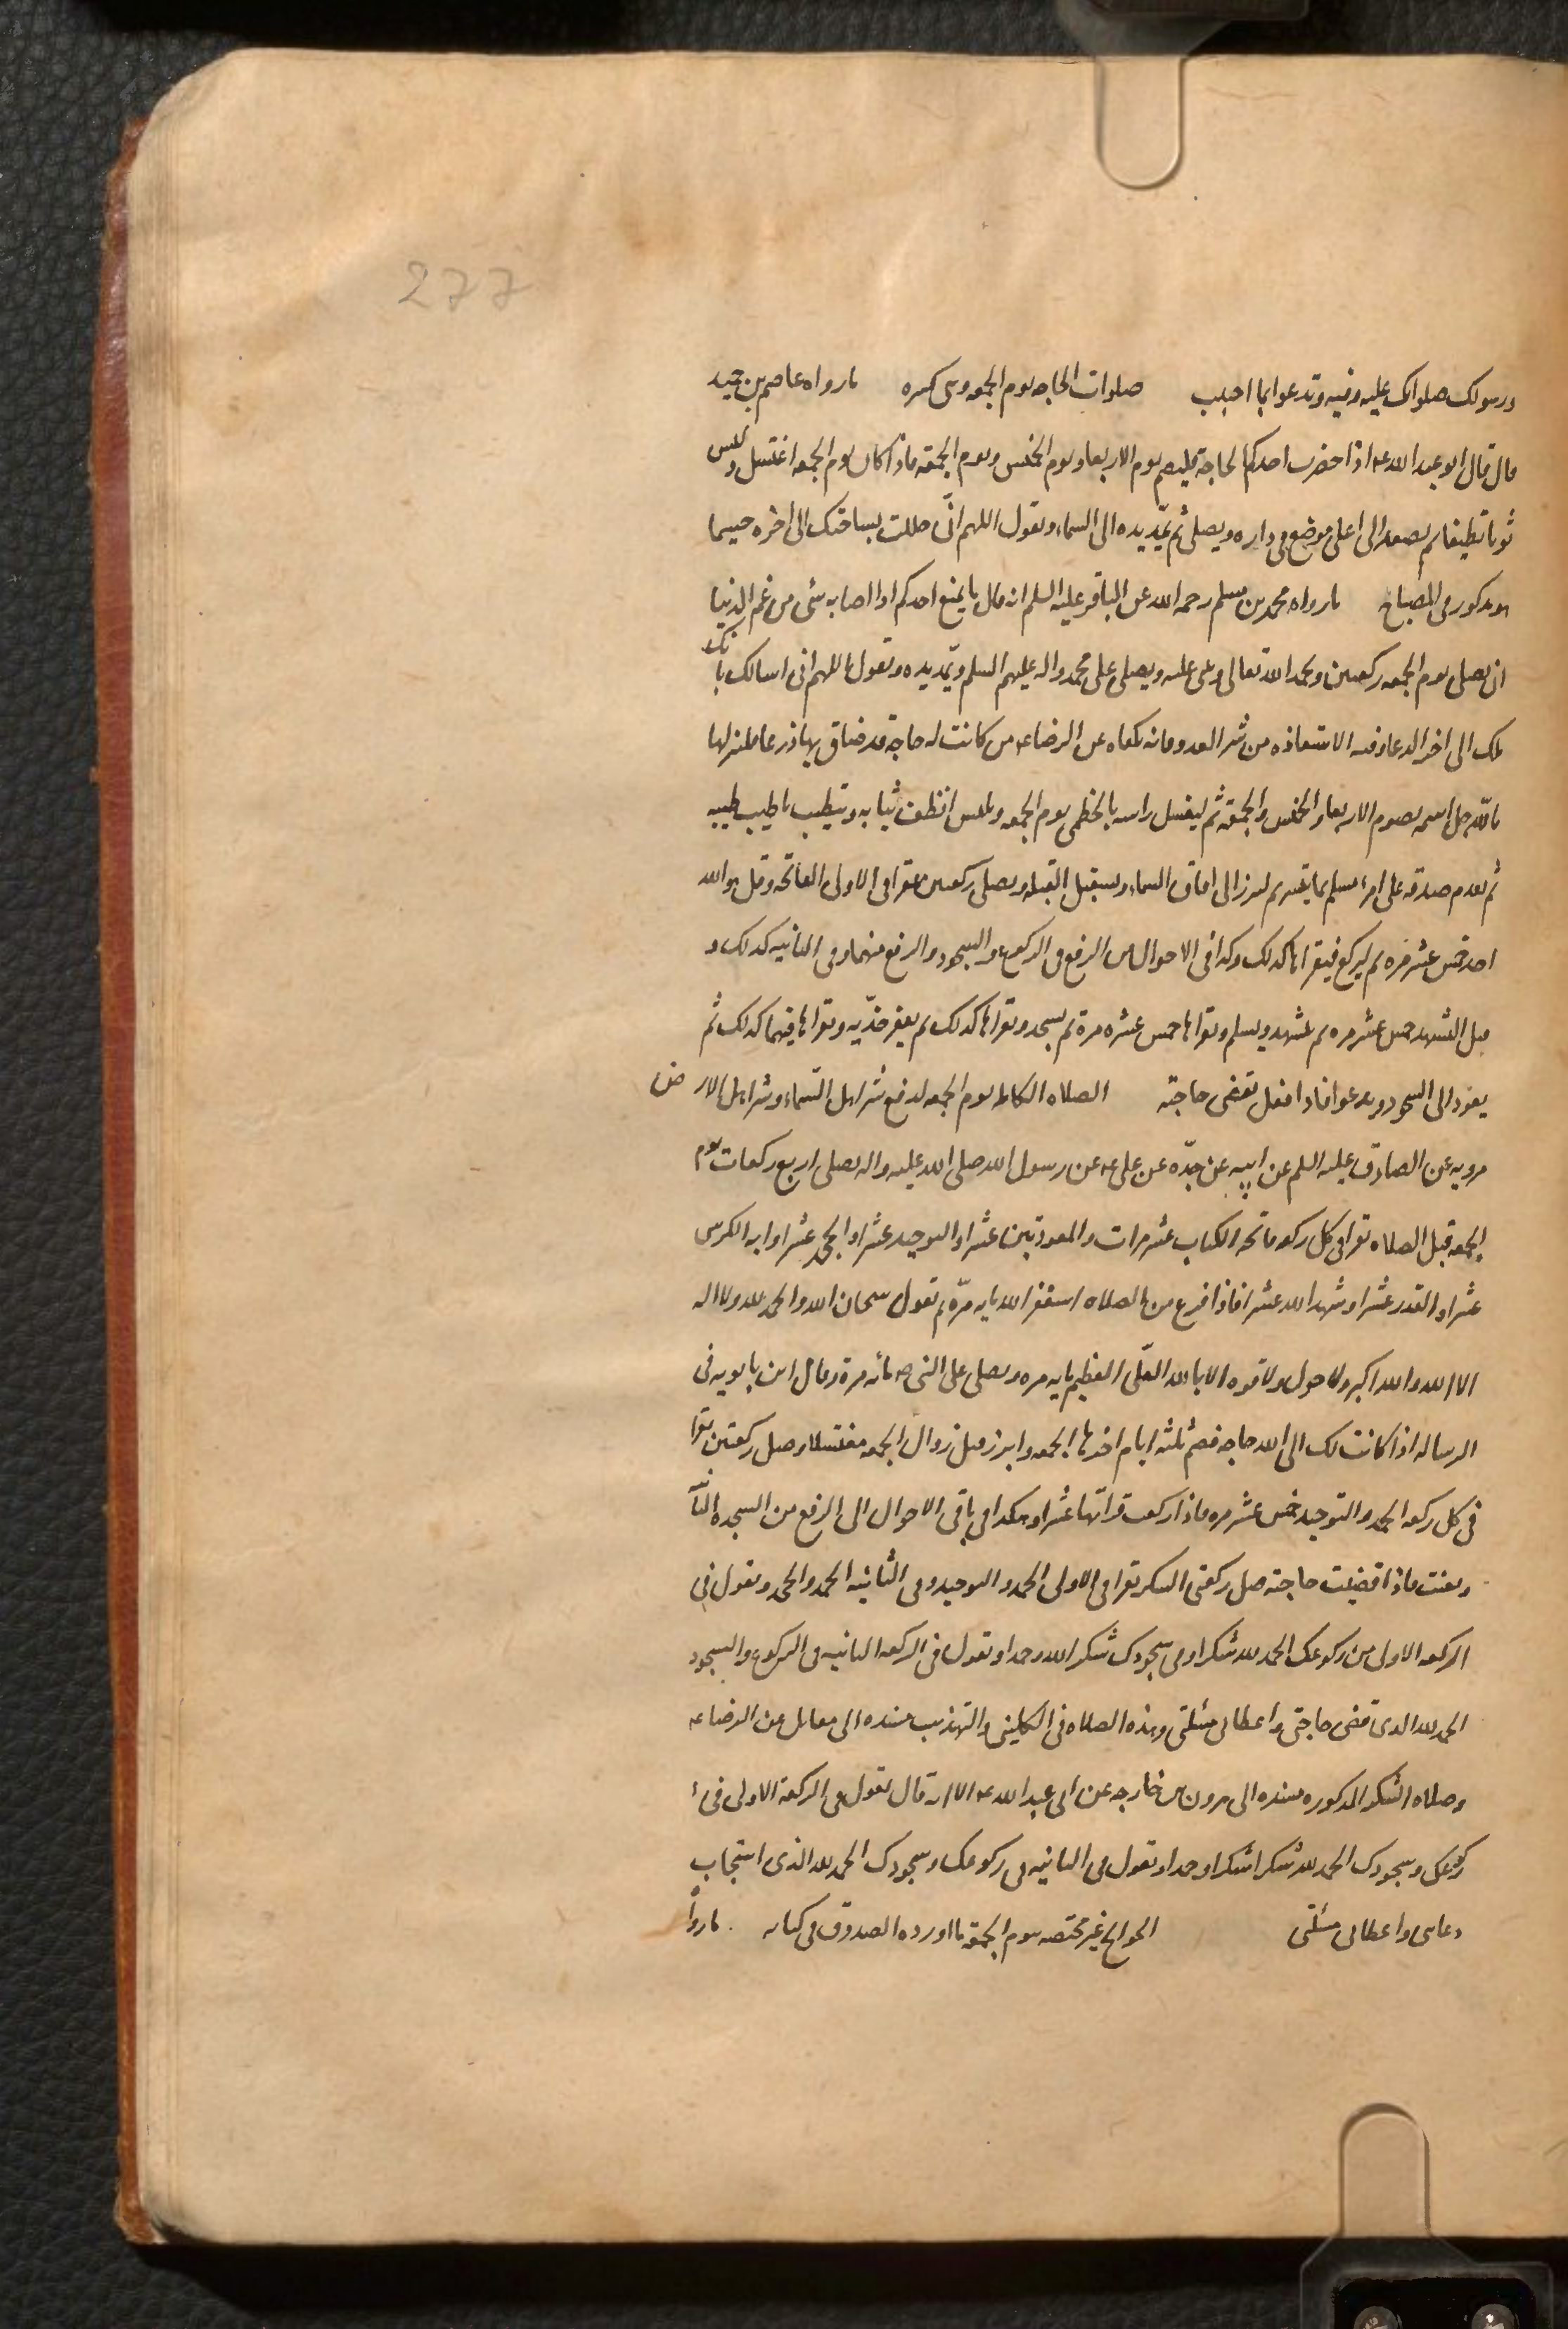 277
ورسولك صلواتك عليه وفيه وتدعوا بما احببت صلوات الحاجه يوم الجمعه وهى كثيره ما رواه عاصم بن حميد
قال قال ابو عبد الله ع اذا حضرت احدكم الحاجة فليصم يوم الاربعا ويوم الخميس ويوم الجمعة فاذا كان يوم الجمعه اغتسل ولبس
ثوبا نظيفا ثم يصعد الى اعلى موضع فى داره ويصلى ثم يمدّ يديه الى السماء ويقول اللهم انّى حللت بساحتك الى اخره حسبما
هو مذكور فى المصباح ما رواه محمد بن مسلم رحمه الله عن الباقر عليه السلم انه قال ما يمنع احدكم اذا اصابه شئ من غم الدنيا
ان يصلى يوم الجمعه ركعتين ويحمد الله تعالى ويثنى عليه ويصلى على محمد واله عليهم السلم ويمدّ يديه ويقول اللهم انى اسالك بانك
ملك الى اخر الدعا وفيه الاستعاذه من شر العدو فانه يكفاه عن الرضا ع من كانت له حاجة قد ضاق بها ذرعا فلينزلها
باللّه جل اسمه يصوم الاربعا والخميس والجمعة ثم ليغسل راسه بالخطمى يوم الجمعه ويلبس انظف ثيابه ويتطيب باطيب طيبه
ثم يقدم صدقه على امرء مسلم بما يتيسر ثم ليبرز الى افاق السماء ويستقبل القبله ويصلى ركعتين يقرا فى الاولى الفاتحه وقل هو الله
احد خمس عشر مره ثم ليركع فيقراها كذلك وكذا فى الاحوال من الرفع فى الركوع والسجود والرفع منهما وفى الثانيه كذلك و
قبل التشهد خمس عشر مره ثم يتشهد ويسلم ويقراها خمس عشره مرة ثم يسجد ويقراها كذلك ثم يعفر خدّيه ويقراها فيهما كذلك ثم
يعود الى السجود ويدعوا فاذا فعل تقضى حاجته الصلاه الكامله يوم الجمعه لدفع شر اهل السّماء وشر اهل الارض
مرويه عن الصادق عليه السلم عن ابيه عن جدّه عن على ع عن رسول الله صلى الله عليه واله يصلى اربع ركعات يوم
الجمعه قبل الصلاه تقرا فى كل ركعه فاتحه الكتاب عشر مرات والمعوذتين عشرا والتوحيد عشرا والجحد عشرا وايه الكرسى
عشرا والقدر عشرا وشهد الله عشرا فاذا فرغ من الصلاه استغفر الله مايه مرّه ثم تقول سبحان الله والحمد لله ولا اله
الا الله والله اكبر ولا حول ولا قوه الا بالله العلّى العظيم مايه مره ويصلى على النبى ص مائه مرة وقال ابن بابويه فى
الرساله اذا كانت لك الى الله حاجه فصم ثلثه ايام اخرها الجمعه وابرز قبل زوال الجمعه مغتسلا وصل ركعتين تقرا
فى كل ركعه الحمد والتوحيد خمس عشر مره فاذا ركعت قراتها عشرا وهكذا فى باقى الاحوال الى الرفع من السجده الثانية
ويقنت فاذا قضيت حاجته صل ركعتى الشكر يقرا فى الاولى الحمد والتوحيد وفى الثانيه الحمد والجحد ويقول فى
الركعه الاولى من ركوعك الحمد لله شكرا وفى سجودك شكرا لله وحمدا وتقول فى الركعه الثانيه فى الركوع والسجود
الحمد لله الذى قضى حاجتى واعطانى مسئلتى وهذه الصلاه فى الكلينى والتهذيب مسنده الى مقاتل عن الرضا ع
وصلاه الشكر المذكوره مسنده الى هرون بن خارجه عن ابى عبد الله ع الا انه قال تقول فى الركعة الاولى فى
ركوعك وسجودك الحمد لله شكرا شكرا وحمدا وتقول فى الثانيه فى ركوعك وسجودك الحمد لله الذى استجاب
دعائى واعطانى مسئلتى الحوائج غير مختصه بيوم الجمعة ما اورده الصدوق فى كتابه ما رواه